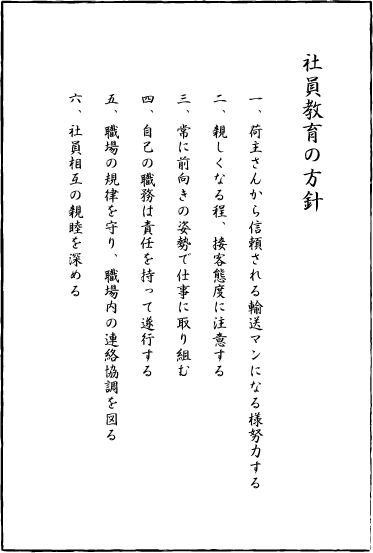 社員教育の方針
一、荷主さんから信頼される輸送マンになる様努力する
二、親しくなる程、接客態度に注意する
三、常に前向きの姿勢で仕事に取り組む
四、自己の職務は責任を持って遂行する
五、職場の規律を守り、職場内の連絡協調を図る
六、社員相互の親睦を深める